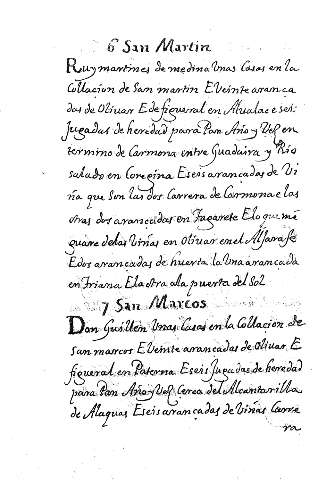 6º San Martin
Ruy martines de medina Unas Casas en la
Collacion de San martin E Veinte aranca
das de Olivar E de figueral en Atualac e seis
Jugadas de heredad para Pan Año y Vez en
termino de Carmona entre Guadaira y Rio
salado en Coregina E seis arancadas de Vi
ña que son las dos Carrera de Carmona e las
otras dos arancadas en Tagarete E lo que me
guare de las Viñas en Olivar en el Aljarafe
E dos arancadas de huerta la Una arancada
en triana E la otra a la puerta del Sol
7 San Marcos
Don Guillen Unas Casas en la Collacion de
San marcos E Veinte arancadas de Olivar E
figueral en Paterna E seis Jugadas de heredad
para Pan Año y Vez Cerca del Alcantarilla
de Alaquas E seis arancadas de Viñas Carre
ra